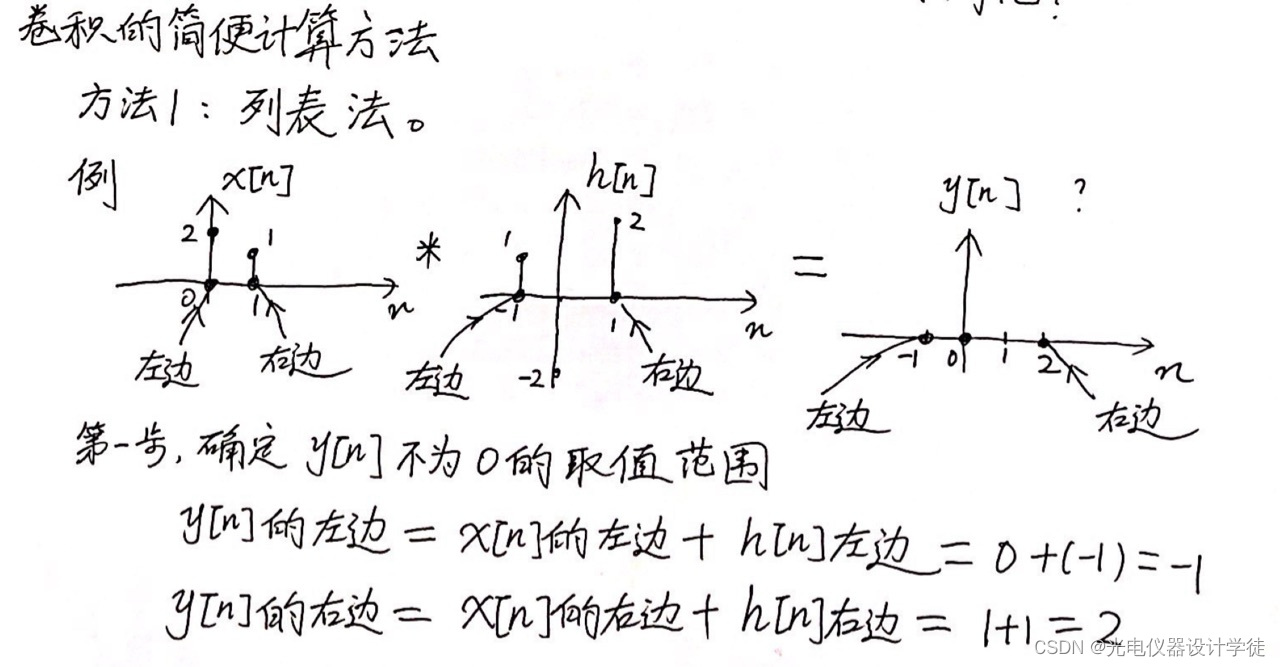 卷积的简便计算方法
方法1：列表法。
例 x[n] h[n] y[n] ?
2 1 * 1 2 =
0 1 n -1 1 n -1 0 1 2 n
左边 右边 左边 -2 右边 左边 右边
第一步，确定 y[n] 不为 0 的取值范围
y[n]的左边 = x[n]的左边 + h[n]左边 = 0 + (-1) = -1
y[n]的右边 = x[n]的右边 + h[n]右边 = 1+1 = 2
CSDN @光电仪器设计学徒